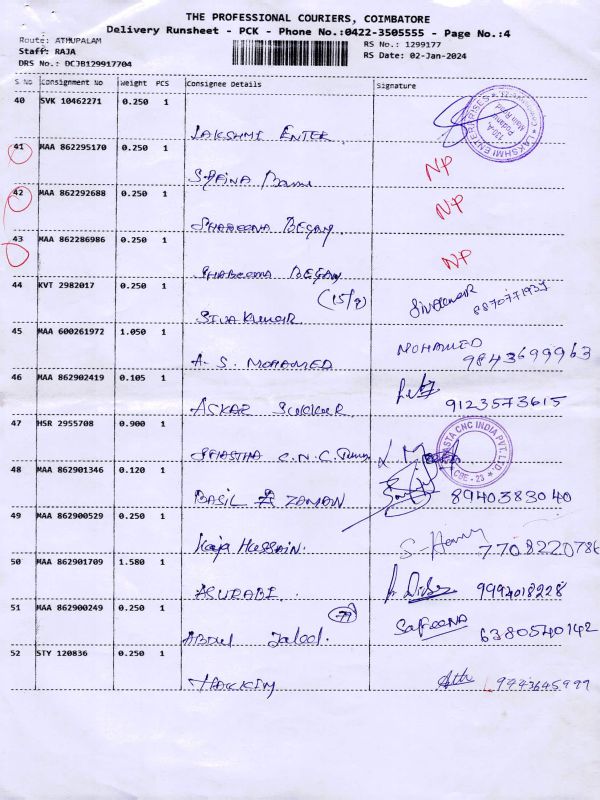 THE PROFESSIONAL COURIERS, COIMBATORE
Delivery Runsheet - PCK - Phone No.:0422-3505555 - Page No.:4
Route: ATHUPALAM
Staff: RAJA
DRS No.: DCJB129917704
RS No.: 1299177
RS Date: 02-Jan-2024
S No Consignment No Weight PCS Consignee Details Signature
40 SVK 10462271 0.250 1
LAKSHMI ENTER
LAKSHMI ENTERPRISES
130-A
Main Road
41 MAA 862295170 0.250 1
NP
42 MAA 862292688 0.250 1
SHABEENA BEGAM
NP
43 MAA 862286986 0.250 1
SHABEENA BEGAM
NP
44 KVT 2982017 0.250 1
(15/2)
SIVAKUMAR
Sivakumar
45 MAA 600261972 1.050 1
A. S. MOHAMED
MOHAMED
9843699963
46 MAA 862902419 0.105 1
ASKAR
9123573615
47 HSR 2955708 0.900 1
SHASTHA C.N.C.
ASTA CNC INDIA PVT. LTD.
CBE - 23
48 MAA 862901346 0.120 1
BASIL ZAMAN
8940383040
49 MAA 862900529 0.250 1
Kaja Hussain.
7708220786
50 MAA 862901709 1.580 1
ASURABI.
9994018228
51 MAA 862900249 0.250 1
Abdul Jaleel.
SaFeena
6380540142
52 STY 120836 0.250 1
HAKKIM
9993645999